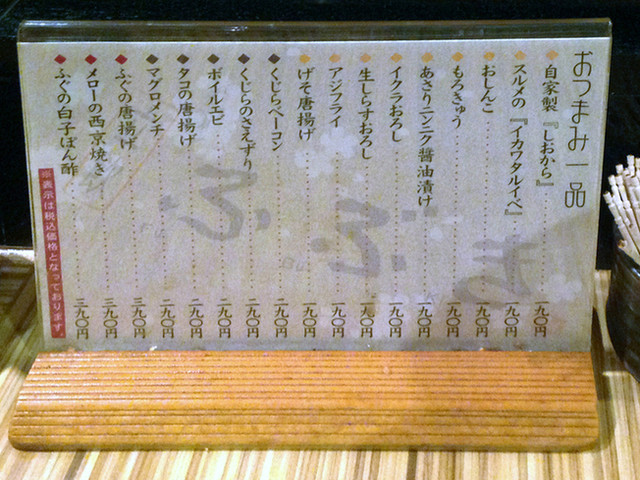 おつまみ一品
自家製『しおから』 一九〇円
スルメの『イカワタルイベ』 一九〇円
おしんこ 一九〇円
もろきゅう 一九〇円
あさりニンニク醤油漬け 一九〇円
イクラおろし 一九〇円
生しらすおろし 一九〇円
アジフライ 一九〇円
げそ唐揚げ 一九〇円
くじらベーコン 二九〇円
くじらのさえずり 二九〇円
ボイルエビ 二九〇円
タコの唐揚げ 二九〇円
マグロメンチ 二九〇円
ふぐの唐揚げ 三九〇円
メローの西京焼き 三九〇円
ふぐの白子ぽん酢 三九〇円
※表示は税込価格となっております。